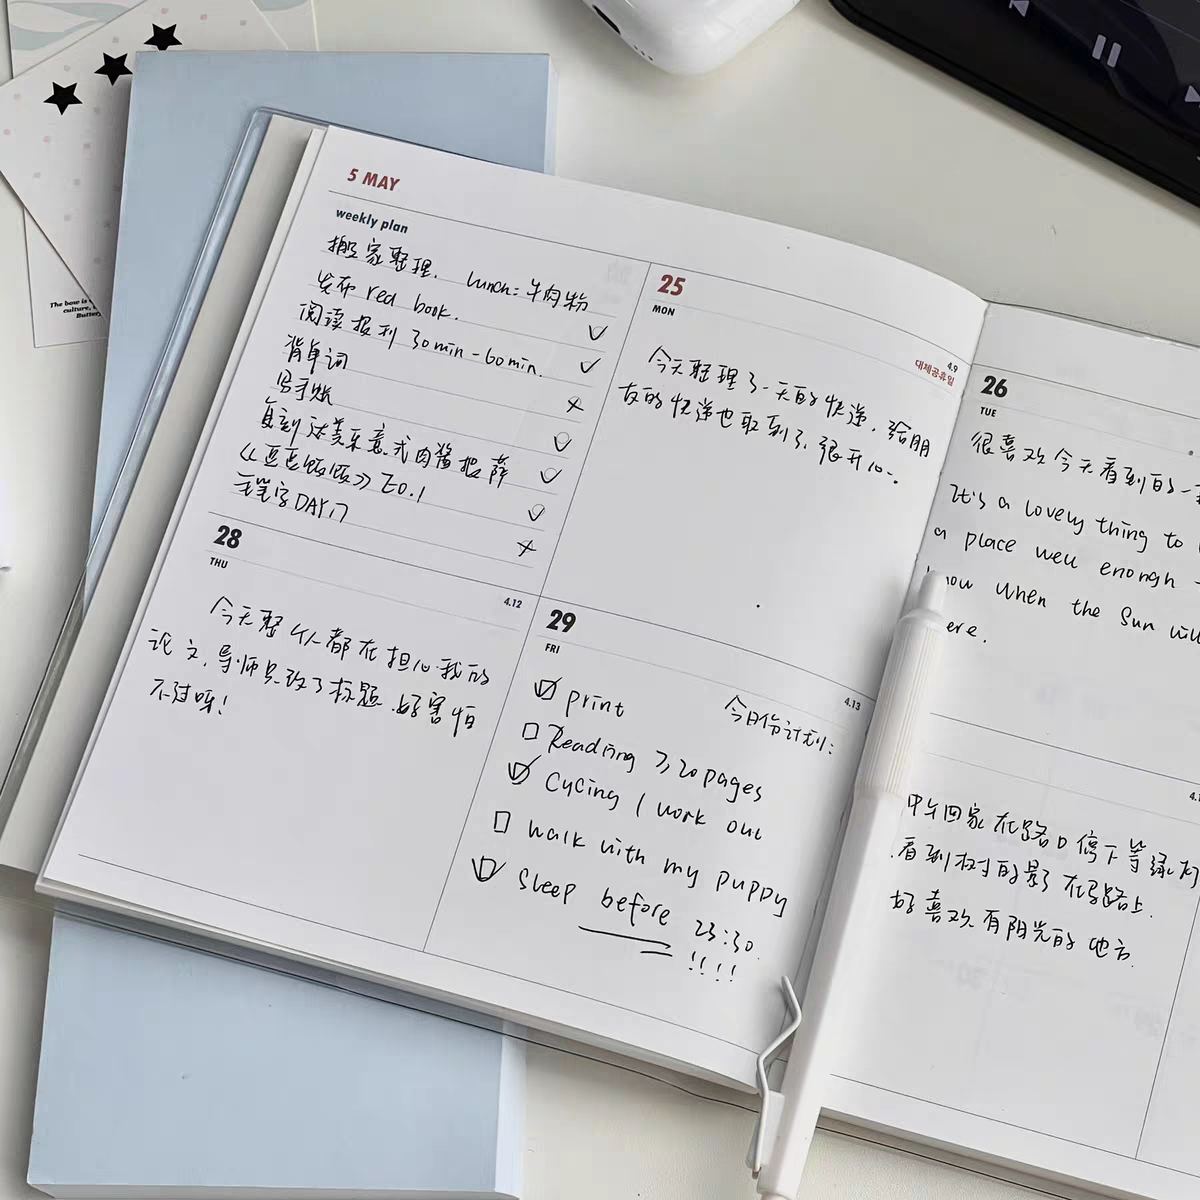 5 MAY
weekly plan
搬家整理. lunch: 牛肉粉
发布 red book.
阅读报刊 30min-60min.
背单词
写手账
复刻达美乐意式肉酱披萨
E0.1
DAY17
25
MON
4.9
대체공휴일
今天整理了一天的快递, 给朋
友的快递也取到了. 很开心~
26
TUE
很喜欢今天看到的一
It's a lovely thing to
a place well enongh
know when the Sun will
ere.
28
THU
4.12
今天整个人都在担心我的
论文, 导师只改了标题. 好害怕
不过呀!
29
FRI
4.13
今日份计划:
print
Reading ≥20pages
Cycing / work out
walk with my puppy
Sleep before 23:30
!!!!
中午回家在路口停下等绿灯
看到树的影子在马路上.
好喜欢有阳光的地方.
The bow is
culture,
Butter